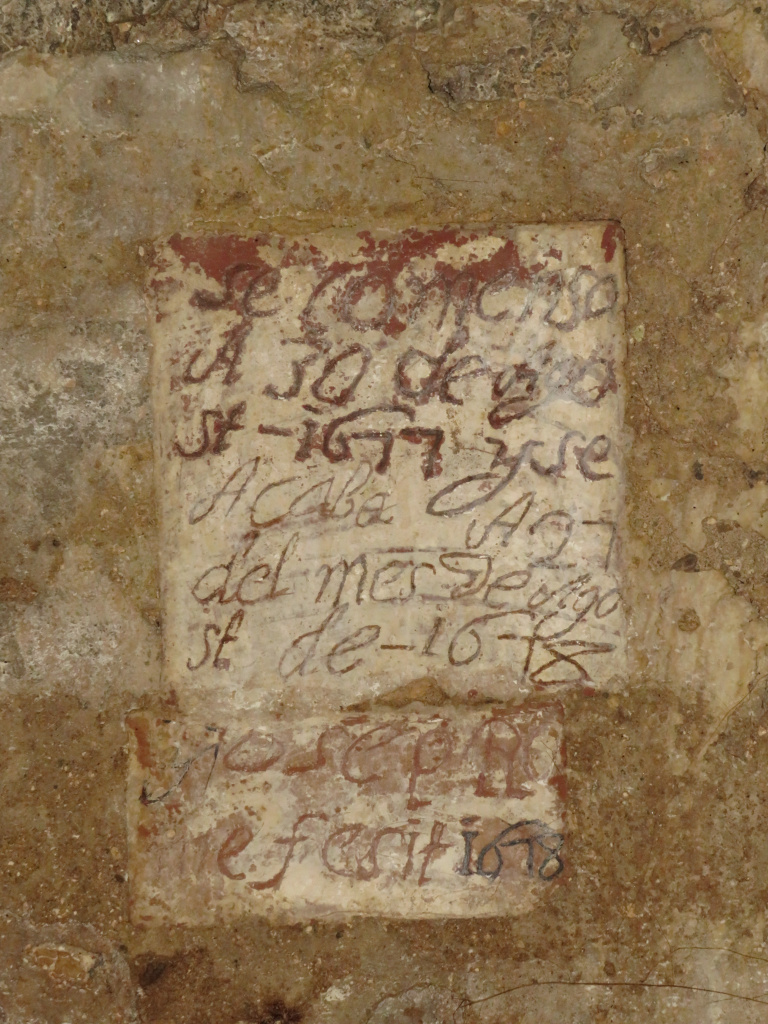 se comenso
A 30 de Ago
st - 1677 y se
Acaba A 27
del mes De Ago
st de - 1678
Joseph
me fesit 1678